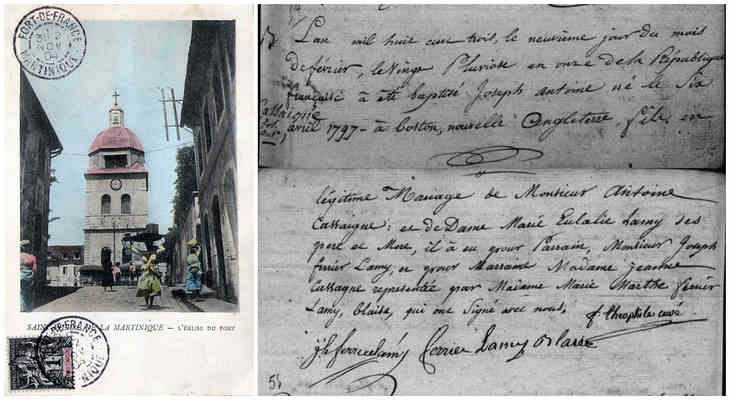 FORT-DE-FRANCE
2
NOV
04
MARTINIQUE
LA MARTINIQUE — L'ÉGLISE DU FORT
FORT-DE-FRANCE
L'an mil huit cent trois, le neuvième jour du mois
de février, le vingt Pluviose en onze de la République
française à été baptisé Joseph Antoine né le six
Cassaigne
avril 1797 - à Boston, nouvelle Angleterre fils, en
légitime Mariage de Monsieur Antoine
Cassaigne: et de Dame Marie Eulalie Lamy ses
pere et Mere, il à eu pour Parrain, Monsieur Joseph
ferrier Lamy, et pour Marraine Madame Jeanne
Cassagne representée par Madame Marie Marthe ferrier
Lamy, blaise, qui ont Signé avec nous, f. théophile curé
ferrier Lamy Blaise